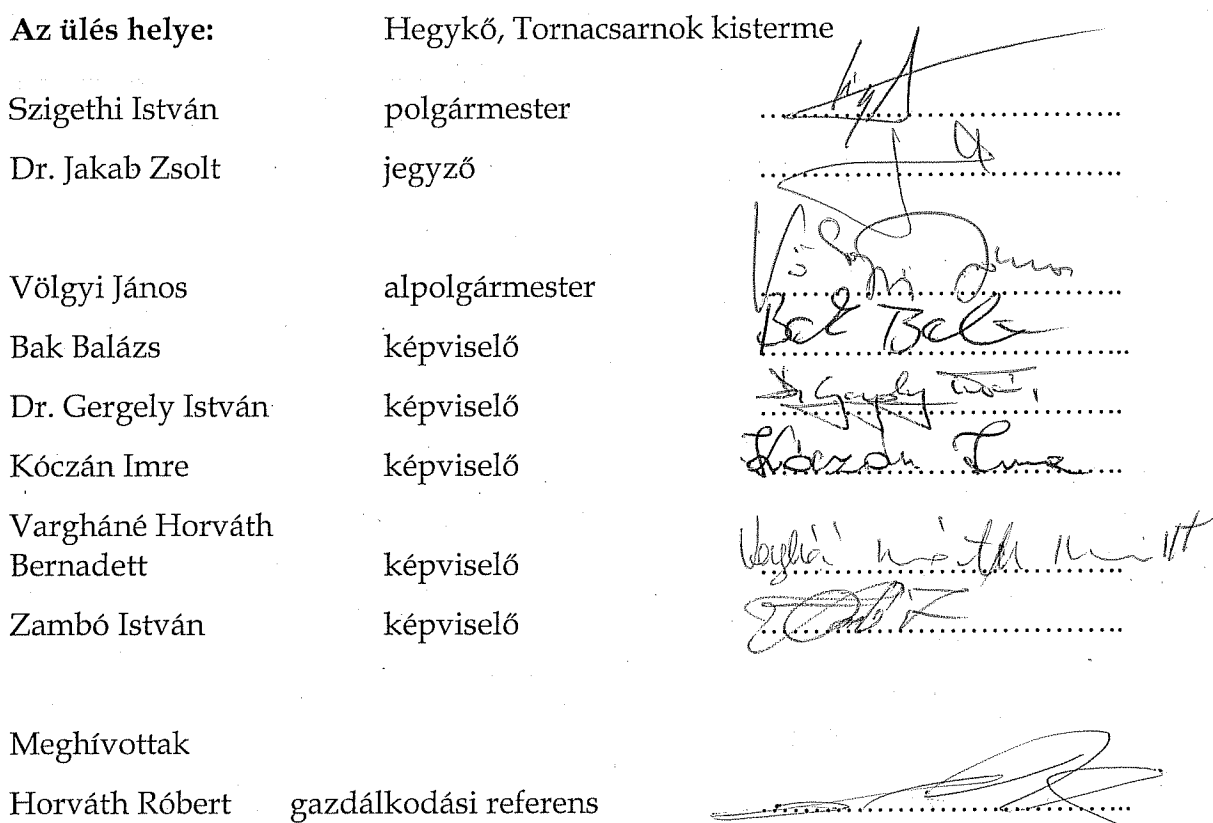 Az ülés helye: Hegykő, Tornacsarnok kisterme
Szigethi István polgármester
Dr. Jakab Zsolt jegyző
Völgyi János alpolgármester Völgyi János
Bak Balázs képviselő Bak Balázs
Dr. Gergely István képviselő Dr. Gergely István
Kóczán Imre képviselő Kóczán Imre
Vargháné Horváth
Bernadett képviselő
Zambó István képviselő
Meghívottak
Horváth Róbert gazdálkodási referens